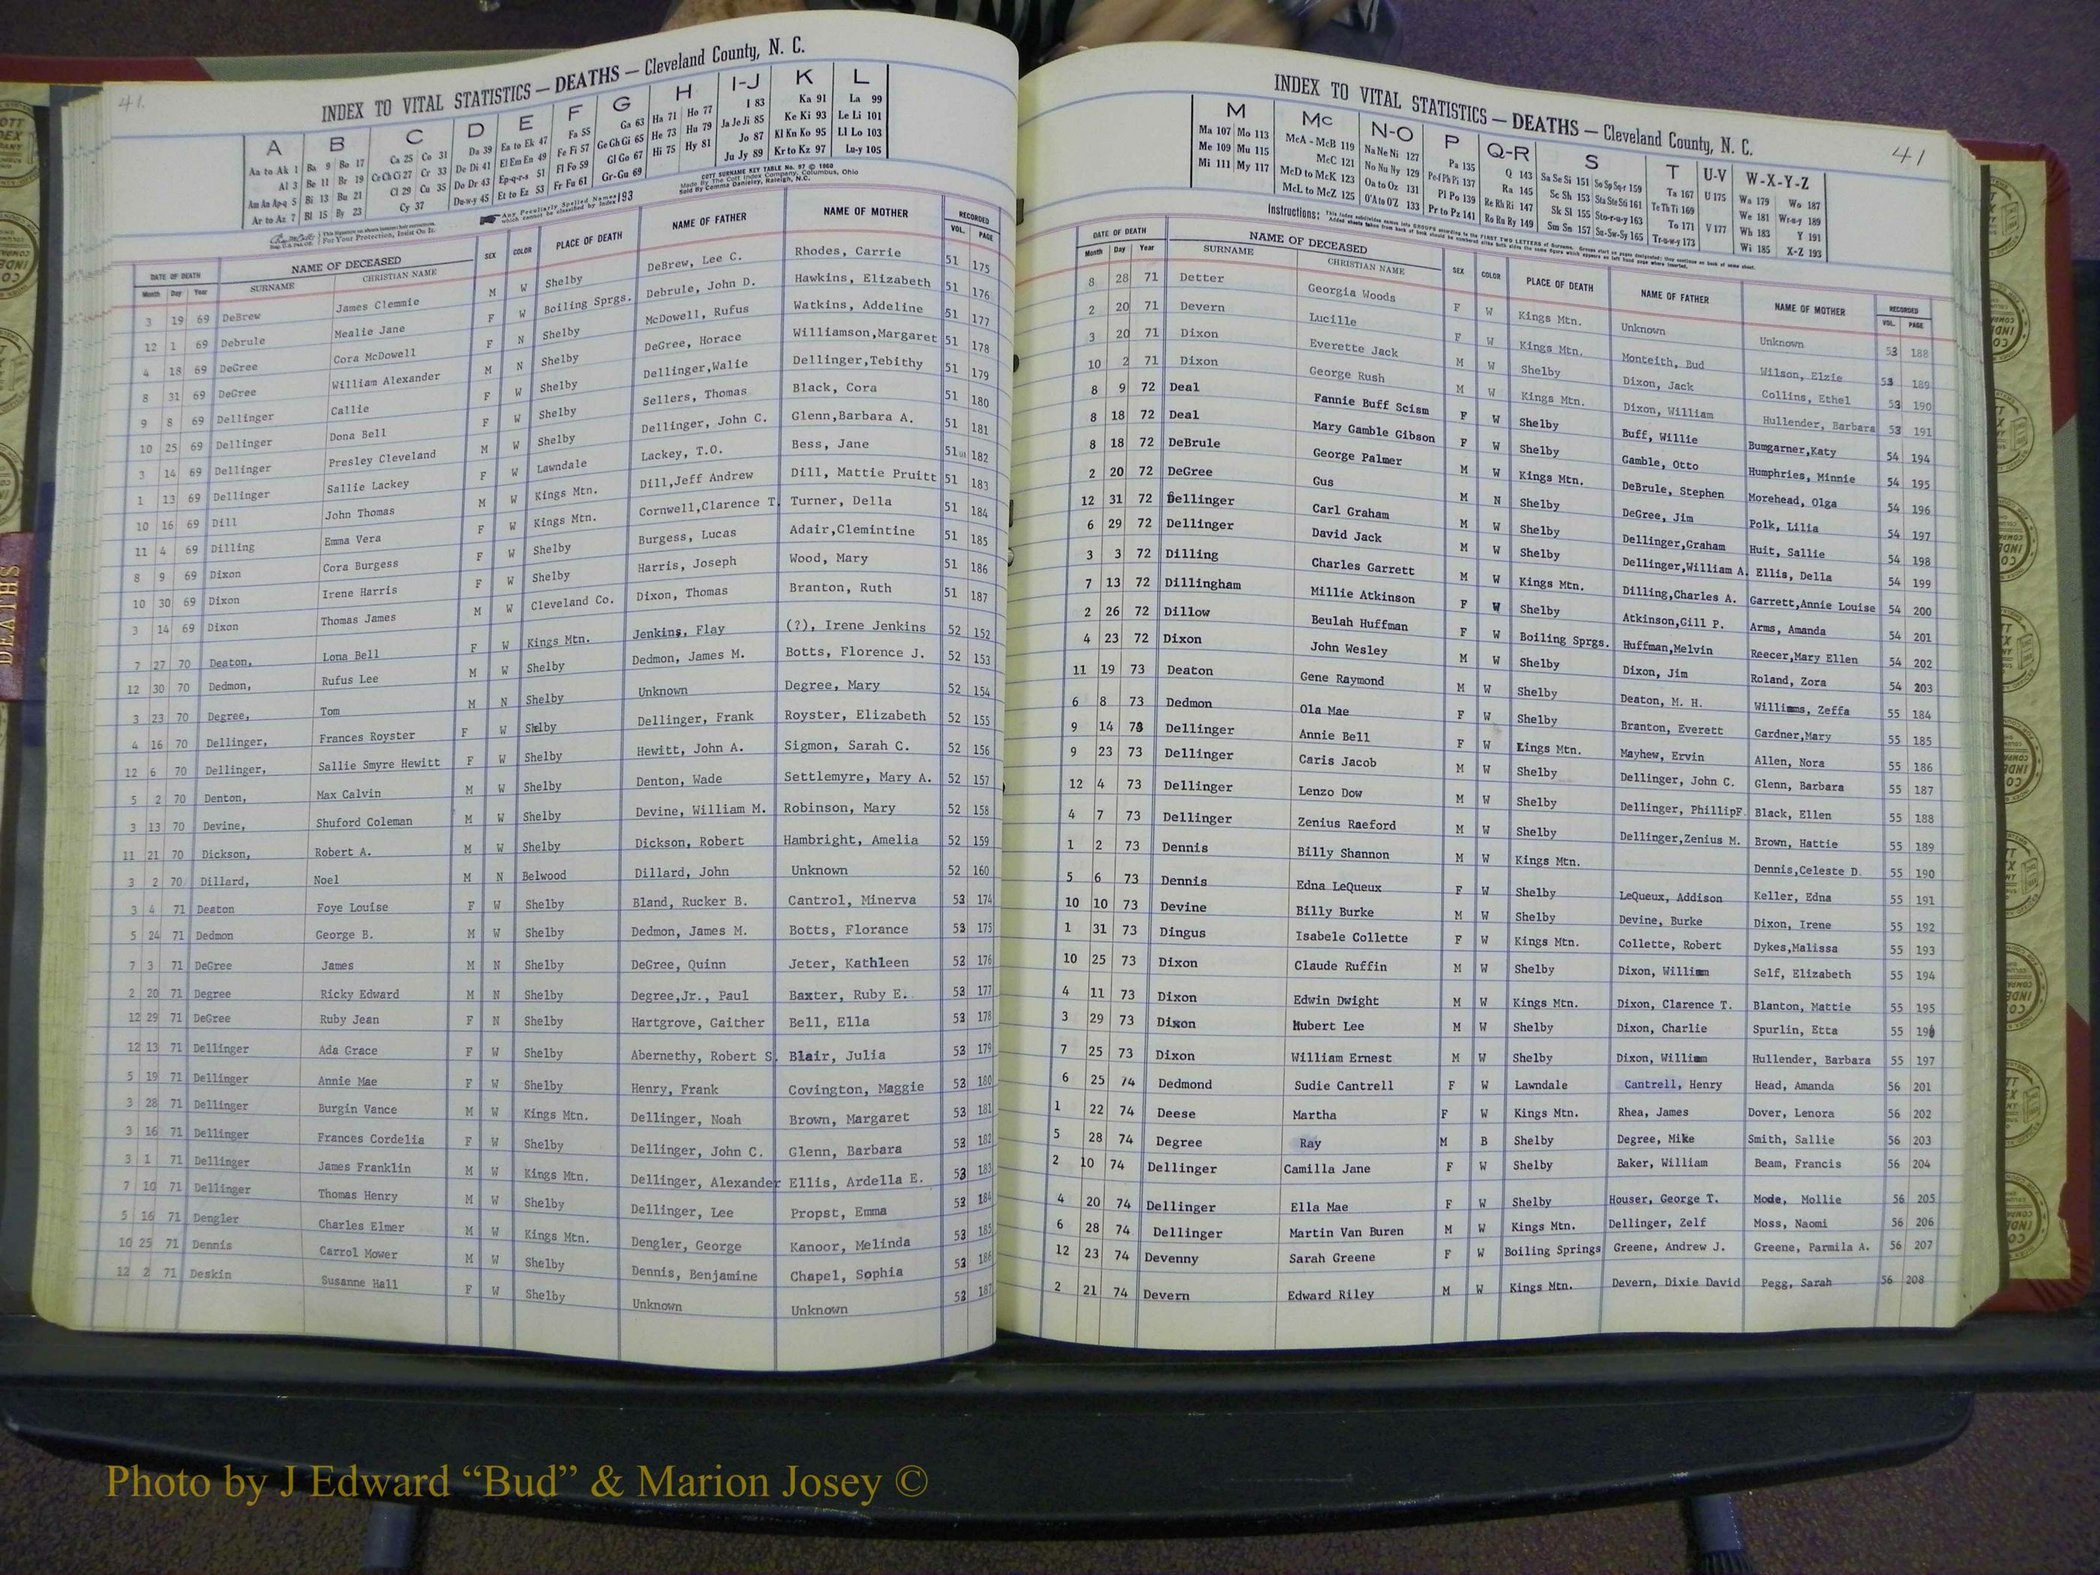 41.
INDEX TO VITAL STATISTICS — DEATHS — Cleveland County, N. C.
A B C D E F G H I-J K L
Aa to Ak 1 Ba 9 Bo 17 Ca 25 Co 31 Da 39 Ea to Ek 47 Fa 55 Ga 63 Ha 71 Ho 77 I 83 Ka 91 La 99
Al 3 Be 11 Br 19 Ce Ch Ci 27 Cr 33 De Di 41 El Em En 49 Fe Fi 57 Ge Gh Gi 65 He 73 Hu 79 Ja Je Ji 85 Ke Ki 93 Le Li 101
Am An Ap-q 5 Bi 13 Bu 21 Cl 29 Cu 35 Do Dr 43 Ep-q-r-s 51 Fl Fo 59 Gl Go 67 Hi 75 Hy 81 Jo 87 Kl Kn Ko 95 Ll Lo 103
Ar to Az 7 Bl 15 By 23 Cy 37 Du-w-y 45 Et to Ez 53 Fr Fu 61 Gr-Gu 69 Ju Jy 89 Kr to Kz 97 Lu-y 105
Any Peculiarly Spelled Names which cannot be classified by Index 193
COTT SURNAME KEY TABLE No. 97 © 1960
Made By The Cott Index Company, Columbus, Ohio
For Your Protection, Insist On It.
DATE OF DEATH NAME OF DECEASED SEX COLOR PLACE OF DEATH NAME OF FATHER NAME OF MOTHER RECORDED
Month Day Year SURNAME CHRISTIAN NAME VOL. PAGE
3 19 69 DeBrew James Clemmie M W Shelby DeBrew, Lee C. Rhodes, Carrie 51 175
12 1 69 Debrule Mealie Jane F W Boiling Sprgs. Debrule, John D. Hawkins, Elizabeth 51 176
4 18 69 DeGree Cora McDowell F N Shelby McDowell, Rufus Watkins, Addeline 51 177
8 31 69 DeGree William Alexander M N Shelby DeGree, Horace Williamson,Margaret 51 178
9 8 69 Dellinger Callie F W Shelby Dellinger,Walie Dellinger,Tebithy 51 179
10 25 69 Dellinger Dona Bell F W Shelby Sellers, Thomas Black, Cora 51 180
3 14 69 Dellinger Presley Cleveland M W Shelby Dellinger, John C. Glenn,Barbara A. 51 181
1 13 69 Dellinger Sallie Lackey F W Lawndale Lackey, T.O. Bess, Jane 51 182
10 16 69 Dill John Thomas M W Kings Mtn. Dill,Jeff Andrew Dill, Mattie Pruitt 51 183
11 4 69 Dilling Emma Vera F W Kings Mtn. Cornwell,Clarence T. Turner, Della 51 184
8 9 69 Dixon Cora Burgess F W Shelby Burgess, Lucas Adair,Clemintine 51 185
10 30 69 Dixon Irene Harris F W Shelby Harris, Joseph Wood, Mary 51 186
3 14 69 Dixon Thomas James M W Cleveland Co. Dixon, Thomas Branton, Ruth 51 187
7 27 70 Deaton, Lona Bell F W Kings Mtn. Jenkins, Flay (?), Irene Jenkins 52 152
12 30 70 Dedmon, Rufus Lee M W Shelby Dedmon, James M. Botts, Florence J. 52 153
3 23 70 Degree, Tom M N Shelby Unknown Degree, Mary 52 154
4 16 70 Dellinger, Frances Royster F W Shelby Dellinger, Frank Royster, Elizabeth 52 155
12 6 70 Dellinger, Sallie Smyre Hewitt F W Shelby Hewitt, John A. Sigmon, Sarah C. 52 156
5 2 70 Denton, Max Calvin M W Shelby Denton, Wade Settlemyre, Mary A. 52 157
3 13 70 Devine, Shuford Coleman M W Shelby Devine, William M. Robinson, Mary 52 158
11 21 70 Dickson, Robert A. M W Shelby Dickson, Robert Hambright, Amelia 52 159
3 2 70 Dillard, Noel M N Belwood Dillard, John Unknown 52 160
3 4 71 Deaton Foye Louise F W Shelby Bland, Rucker B. Cantrol, Minerva 53 174
5 24 71 Dedmon George B. M W Shelby Dedmon, James M. Botts, Florance 53 175
7 3 71 DeGree James M N Shelby DeGree, Quinn Jeter, Kathleen 53 176
2 20 71 Degree Ricky Edward M N Shelby Degree,Jr., Paul Baxter, Ruby E. 53 177
12 29 71 DeGree Ruby Jean F N Shelby Hartgrove, Gaither Bell, Ella 53 178
12 13 71 Dellinger Ada Grace F W Shelby Abernethy, Robert S. Blair, Julia 53 179
5 19 71 Dellinger Annie Mae F W Shelby Henry, Frank Covington, Maggie 53 180
3 28 71 Dellinger Burgin Vance M W Kings Mtn. Dellinger, Noah Brown, Margaret 53 181
3 16 71 Dellinger Frances Cordelia F W Shelby Dellinger, John C. Glenn, Barbara 53 182
3 1 71 Dellinger James Franklin M W Kings Mtn. Dellinger, Alexander Ellis, Ardella E. 53 183
7 10 71 Dellinger Thomas Henry M W Shelby Dellinger, Lee Propst, Emma 53 184
5 16 71 Dengler Charles Elmer M W Kings Mtn. Dengler, George Kanoor, Melinda 53 185
10 25 71 Dennis Carrol Mower M W Shelby Dennis, Benjamine Chapel, Sophia 53 186
12 2 71 Deskin Susanne Hall F W Shelby Unknown Unknown 53 187
INDEX TO VITAL STATISTICS — DEATHS — Cleveland County, N. C.
41
M Mc N-O P Q-R S T U-V W-X-Y-Z
Ma 107 Mo 113 McA - McB 119 Na Ne Ni 127 Pa 135 Q 143 Sa Se Si 151 So Sp Sq-r 159 Ta 167 U 175 Wa 179 Wo 187
Me 109 Mu 115 McC 121 No Nu Ny 129 Pe-f Ph Pi 137 Ra 145 Sc Sh 153 Sta Ste Sti 161 Te Th Ti 169 We 181 Wr-u-y 189
Mi 111 My 117 McD to McK 123 Oa to Oz 131 Pl Po 139 Re Rh Ri 147 Sk Sl 155 Sto-r-u-y 163 To 171 V 177 Wh 183 Y 191
McL to McZ 125 O'A to O'Z 133 Pr to Pz 141 Ro Ru Ry 149 Sm Sn 157 Su-Sw-Sy 165 Tr-u-w-y 173 Wi 185 X-Z 193
Instructions: This index subdivides names into GROUPS according to the FIRST TWO LETTERS of Surname.
DATE OF DEATH NAME OF DECEASED SEX COLOR PLACE OF DEATH NAME OF FATHER NAME OF MOTHER RECORDED
Month Day Year SURNAME CHRISTIAN NAME VOL. PAGE
8 28 71 Detter Georgia Woods F W Kings Mtn. Unknown Unknown 53 188
2 20 71 Devern Lucille F W Kings Mtn. Monteith, Bud Wilson, Elzie 53 189
3 20 71 Dixon Everette Jack M W Shelby Dixon, Jack Collins, Ethel 53 190
10 2 71 Dixon George Rush M W Kings Mtn. Dixon, William Hullender, Barbara 53 191
8 9 72 Deal Fannie Buff Scism F W Shelby Buff, Willie Bumgarner,Katy 54 194
8 18 72 Deal Mary Gamble Gibson F W Shelby Gamble, Otto Humphries, Minnie 54 195
8 18 72 DeBrule George Palmer M W Kings Mtn. DeBrule, Stephen Morehead, Olga 54 196
2 20 72 DeGree Gus M N Shelby DeGree, Jim Polk, Lilia 54 197
12 31 72 Dellinger Carl Graham M W Shelby Dellinger,Graham Huit, Sallie 54 198
6 29 72 Dellinger David Jack M W Shelby Dellinger,William A. Ellis, Della 54 199
3 3 72 Dilling Charles Garrett M W Kings Mtn. Dilling,Charles A. Garrett,Annie Louise 54 200
7 13 72 Dillingham Millie Atkinson F W Shelby Atkinson,Gill P. Arms, Amanda 54 201
2 26 72 Dillow Beulah Huffman F W Boiling Sprgs. Huffman,Melvin Reecer,Mary Ellen 54 202
4 23 72 Dixon John Wesley M W Shelby Dixon, Jim Roland, Zora 54 203
11 19 73 Deaton Gene Raymond M W Shelby Deaton, M. H. Williams, Zeffa 55 184
6 8 73 Dedmon Ola Mae F W Shelby Branton, Everett Gardner,Mary 55 185
9 14 73 Dellinger Annie Bell F W Kings Mtn. Mayhew, Ervin Allen, Nora 55 186
9 23 73 Dellinger Caris Jacob M W Shelby Dellinger, John C. Glenn, Barbara 55 187
12 4 73 Dellinger Lenzo Dow M W Shelby Dellinger, PhillipF. Black, Ellen 55 188
4 7 73 Dellinger Zenius Raeford M W Shelby Dellinger,Zenius M. Brown, Hattie 55 189
1 2 73 Dennis Billy Shannon M W Kings Mtn. Dennis,Celeste D. 55 190
5 6 73 Dennis Edna LeQueux F W Shelby LeQueux, Addison Keller, Edna 55 191
10 10 73 Devine Billy Burke M W Shelby Devine, Burke Dixon, Irene 55 192
1 31 73 Dingus Isabele Collette F W Kings Mtn. Collette, Robert Dykes,Malissa 55 193
10 25 73 Dixon Claude Ruffin M W Shelby Dixon, William Self, Elizabeth 55 194
4 11 73 Dixon Edwin Dwight M W Kings Mtn. Dixon, Clarence T. Blanton, Mattie 55 195
3 29 73 Dixon Hubert Lee M W Shelby Dixon, Charlie Spurlin, Etta 55 196
7 25 73 Dixon William Ernest M W Shelby Dixon, William Hullender, Barbara 55 197
6 25 74 Dedmond Sudie Cantrell F W Lawndale Cantrell, Henry Head, Amanda 56 201
1 22 74 Deese Martha F W Kings Mtn. Rhea, James Dover, Lenora 56 202
5 28 74 Degree Ray M B Shelby Degree, Mike Smith, Sallie 56 203
2 10 74 Dellinger Camilla Jane F W Shelby Baker, William Beam, Francis 56 204
4 20 74 Dellinger Ella Mae F W Shelby Houser, George T. Mode, Mollie 56 205
6 28 74 Dellinger Martin Van Buren M W Kings Mtn. Dellinger, Zelf Moss, Naomi 56 206
12 23 74 Devenny Sarah Greene F W Boiling Springs Greene, Andrew J. Greene, Parmila A. 56 207
2 21 74 Devern Edward Riley M W Kings Mtn. Devern, Dixie David Pegg, Sarah 56 208
DEATHS
Photo by J Edward “Bud” & Marion Josey ©